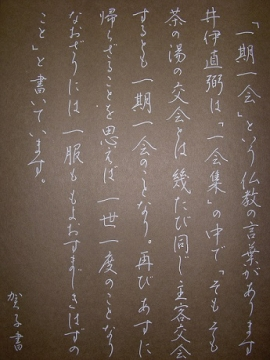 「一期一会」という仏教の言葉があります
井伊直弼は「一会集」の中で「そもそも
茶の湯の交会とは幾たび同じ主客交会
するとも一期一会のことなり。再びあすに
帰らざることを思えば一世一度のことなり
なおざりには一服ももよおすまじきはずの
こと」と書いています。
書